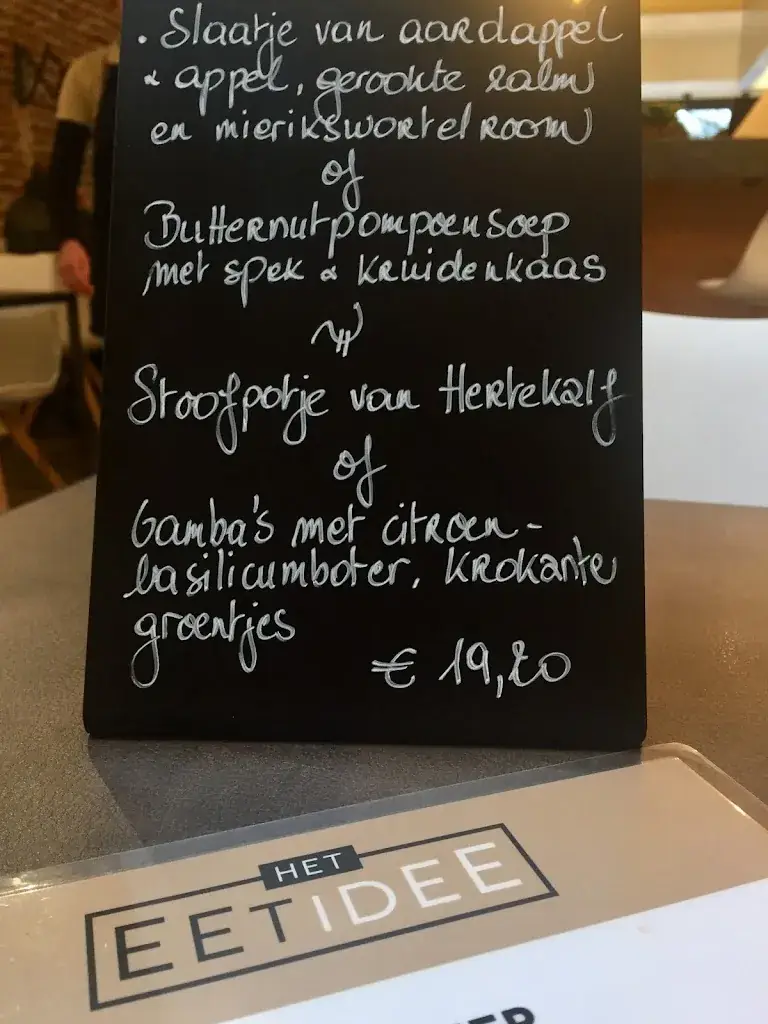 . Slaatje van aardappel
& appel, gerookte zalm
en mierikswortelroom
of
Butternutpompoensoep
met spek & kruidenkaas
Stoofpotje van Hertekalf
of
Gamba's met citroen-
basilicumboter, krokante
groentjes
€ 19,20
HET
EETIDEE